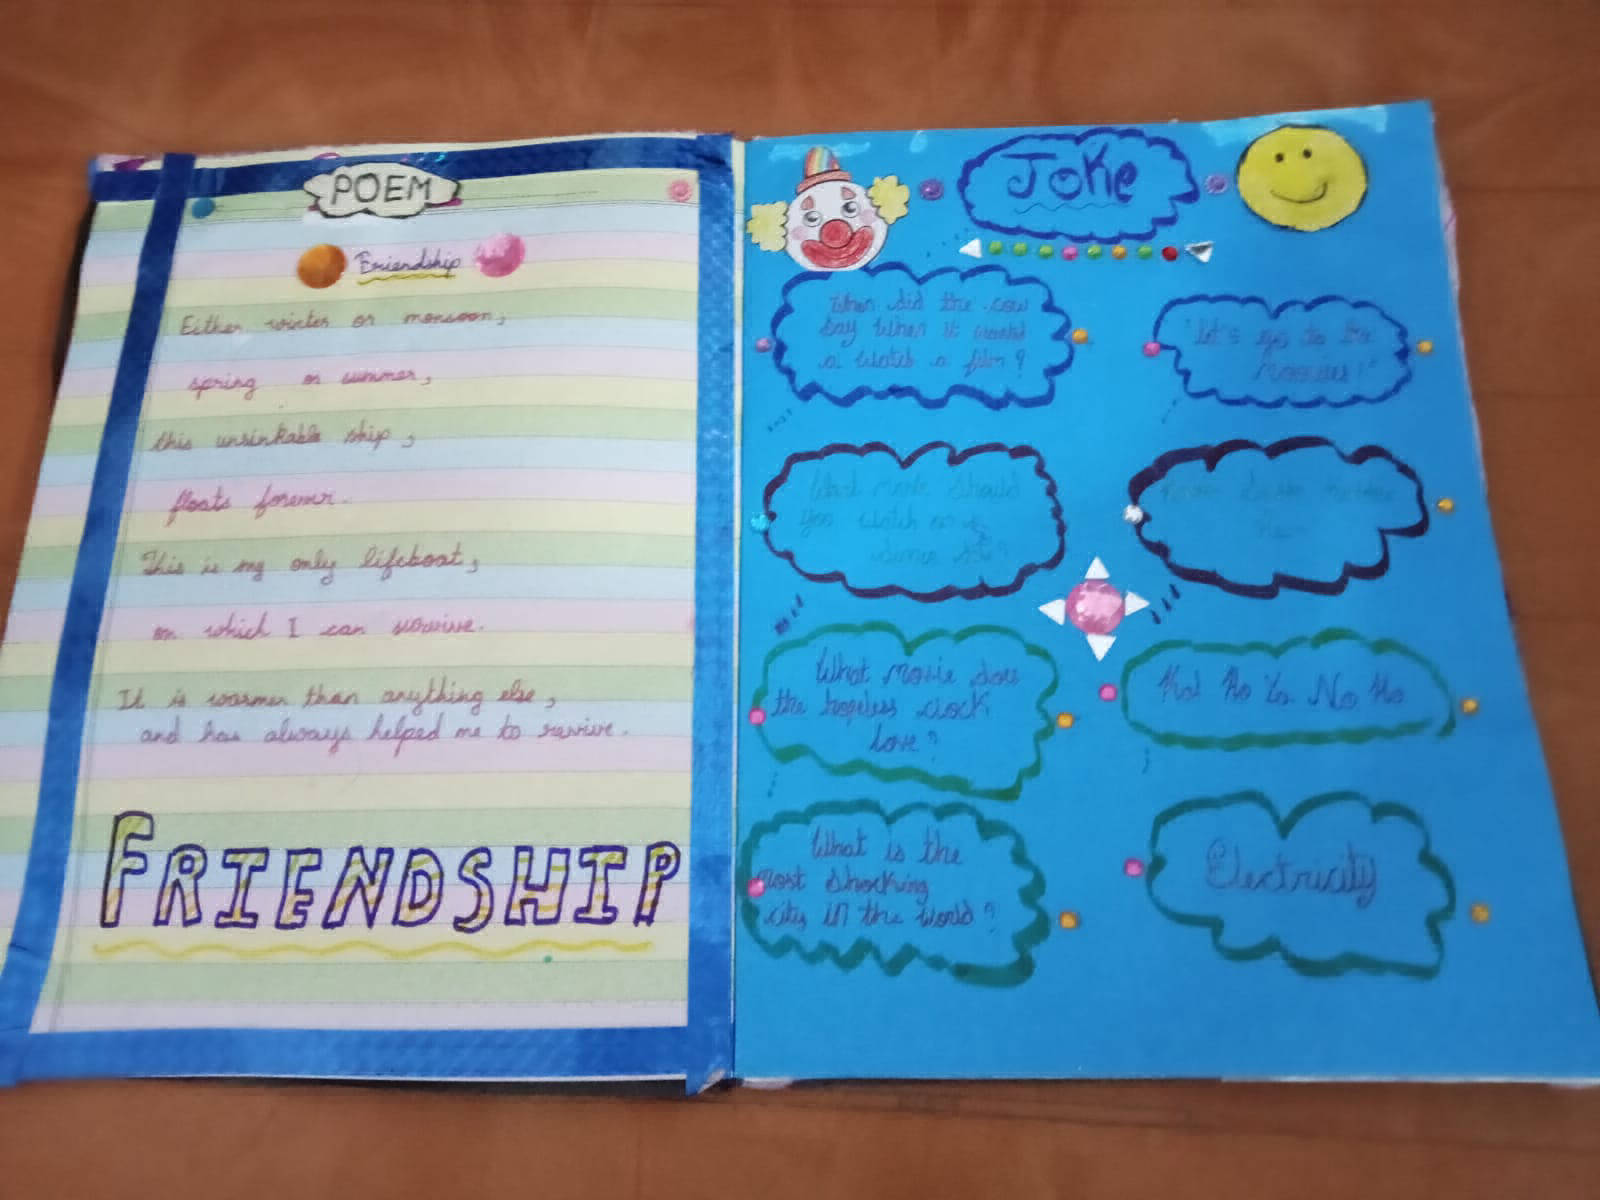 POEM
Friendship
Either winter or monsoon,
spring or summer,
this unsinkable ship,
floats forever.
This is my only lifeboat,
on which I can survive.
It is warmer than anything else,
and has always helped me to revive.
FRIENDSHIP
JOKE
When did the cow
say when it wants
a watch a film?
"Let's go to the
Mooovies!"
What movie should
you watch on
What movie does
the hopeless clock
love?
Kal Ho Ya No Ho
What is the
most shocking
city in the world?
Electricity